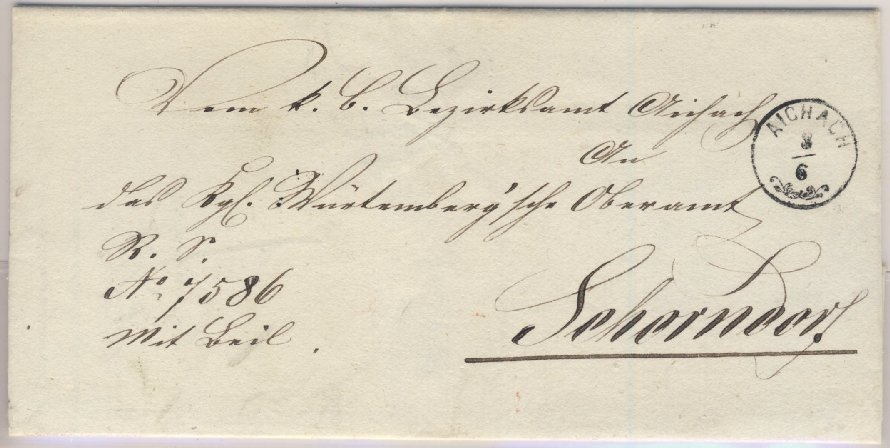 Vom k. b. Bezirksamt Aichach
AICHACH
8
6
An
das Kgl. Würtemberg'sche Oberamt
R. S.
No. 7586
Mit Beil.
Schorndorf